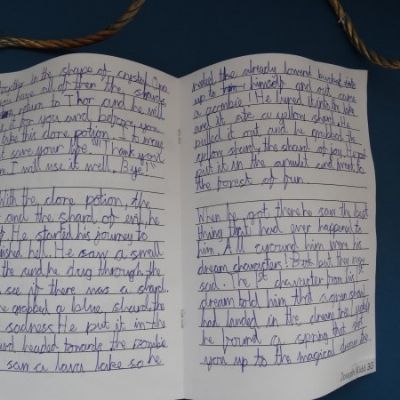 together in the shape of crystal. Once
you have all of them the shards
return to Thor and he will
it for you and before you
take this clore potion, to
cure your life." "Thank you
I will use it well, Bye!"
With the clore potion, the
and the shard of evil he
He started his journey to
hell. He saw a small
the and he dug through the
see if there was a shard.
He grabbed a blue shard, the
sadness. He put it in the
and headed towards the zombie
saw a lava lake so he
the already lowerd bucket
up to himself and out came
a zombie! He lured it into the lake
and it ate a yellow shard. He
pulled it out and he grabbed the
yellow shard, the shard of joy. He
put it in the amulet and went to
the forest of fun.
When he got there he saw the best
thing that had ever happened to
him. All around him were his
dream characters! But they were
sad. The 1st character from his
dream told him that a green shard
had landed in the dream tree, luckily
he found a spring that got
you up to the magical dome. He
Joseph Kidd 30